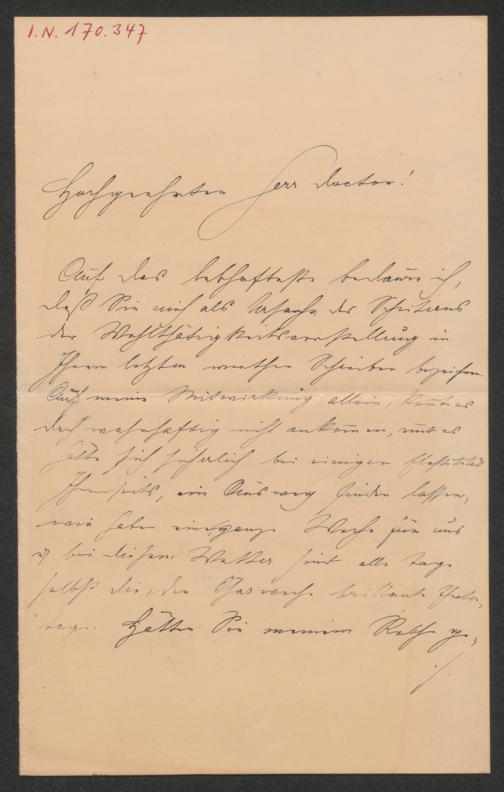 I.N. 170.347
Hochgeehrter Herr Doctor!
Auf das lebhafteste bedaure ich,
daß Sie mich als Ursache des Scheiterns
der Wohlthätigkeitsvorstellung in
Ihrem letzten werthen Schreiben bezeichnen.
Auf meine Mitwirkung allein, konnte es
doch wahrhaftig nicht ankommen, und es
hätte sich sicherlich bei einiger
Ihrerseits, ein Ausweg finden lassen,
wir haben eine ganze Woche für uns
u bei diesem Wetter sind alle Tage
selbst die, der Charwoche brillante Theater-
tage. Hätten Sie meinem Rathe ge-
./.